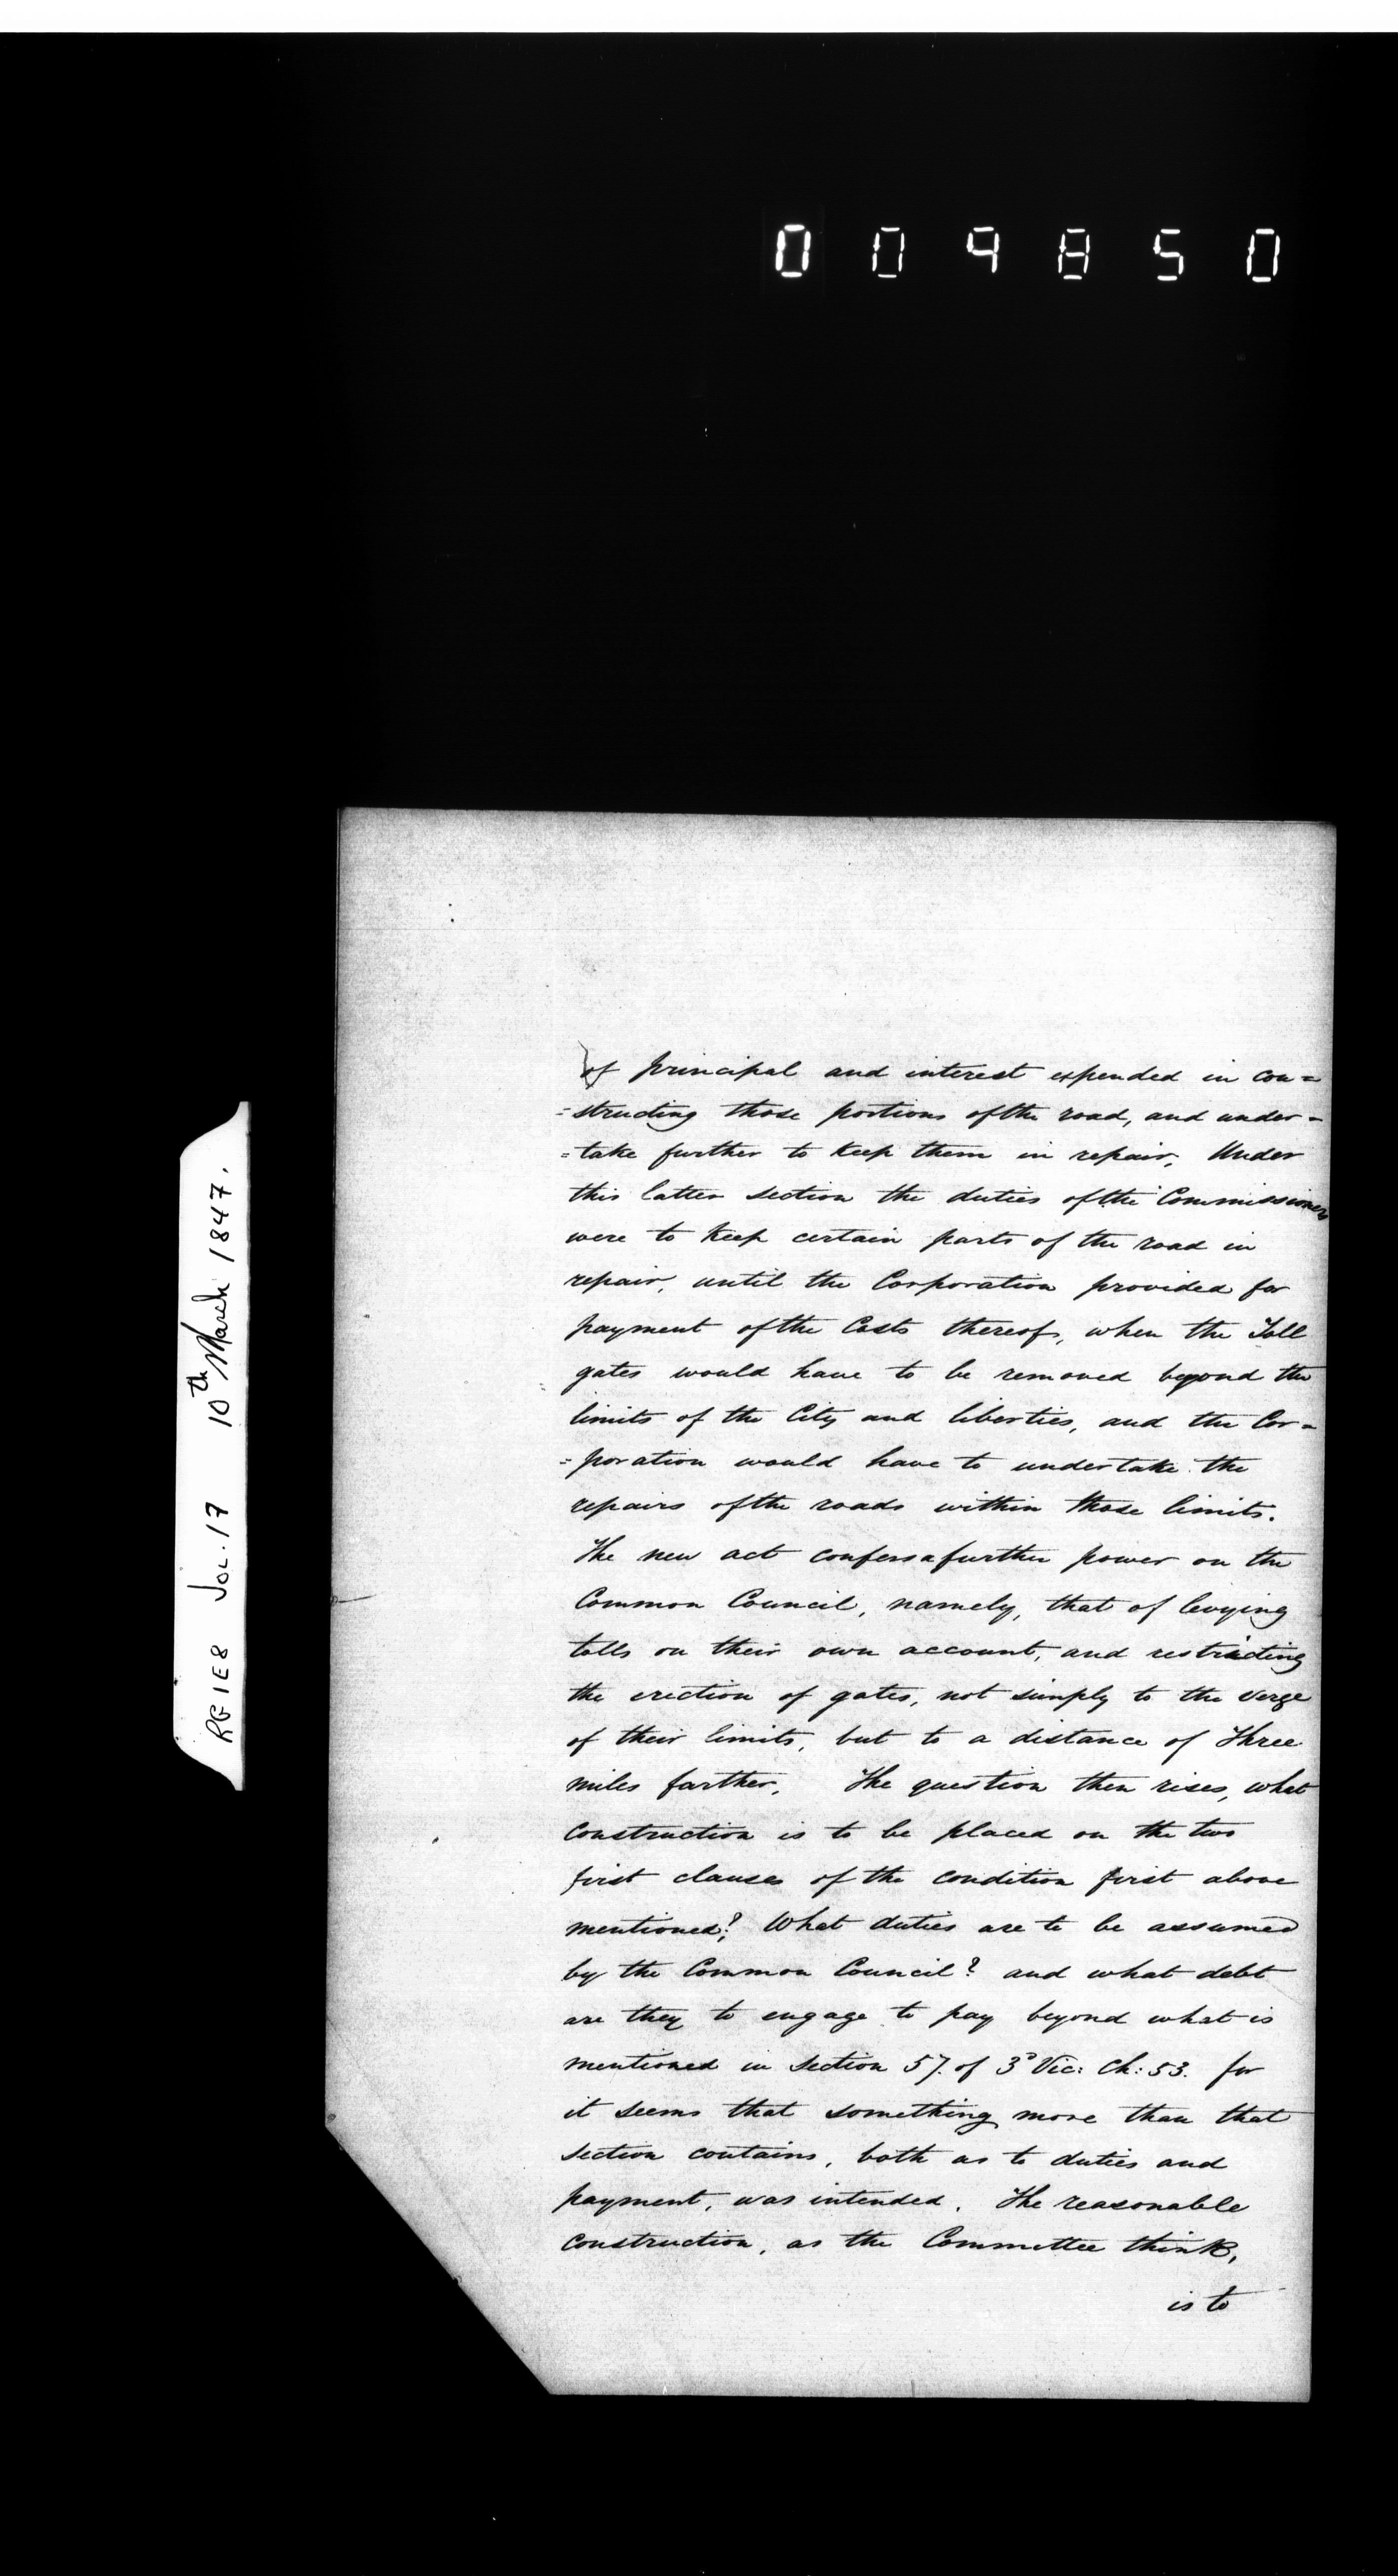 009850
RG 1 E8 Vol. 17 10th March 1847.
of principal and interest expended in con=
=structing those portions of the road, and under=
=take further to keep them in repair. Under
this latter section the duties of the Commissioners
were to keep certain parts of the road in
repair, until the Corporation provided for
payment of the Costs thereof, when the Toll
gates would have to be removed beyond the
limits of the City and liberties, and the Cor=
=poration would have to undertake the
repairs of the roads within those limits.
The new act confers a further power on the
Common Council, namely, that of levying
tolls on their own account, and restricting
the erection of gates, not simply to the verge
of their limits, but to a distance of Three
miles farther. The question then rises, what
construction is to be placed on the two
first clauses of the condition first above
mentioned? What duties are to be assumed
by the Common Council? and what debt
are they to engage to pay beyond what is
mentioned in Section 57. of 3d Vic: Ch: 53. for
it seems that something more than that
section contains, both as to duties and
payment, was intended. The reasonable
construction, as the Committee think,
is to